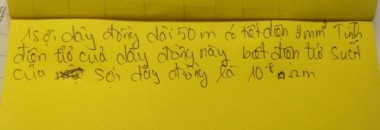 1 sợi dây đồng dài 50 m có tiết diện 8mm². Tính
điện trở của dây đồng này biết điện trở suất
của sợi dây đồng là 10⁻⁸ Ωm